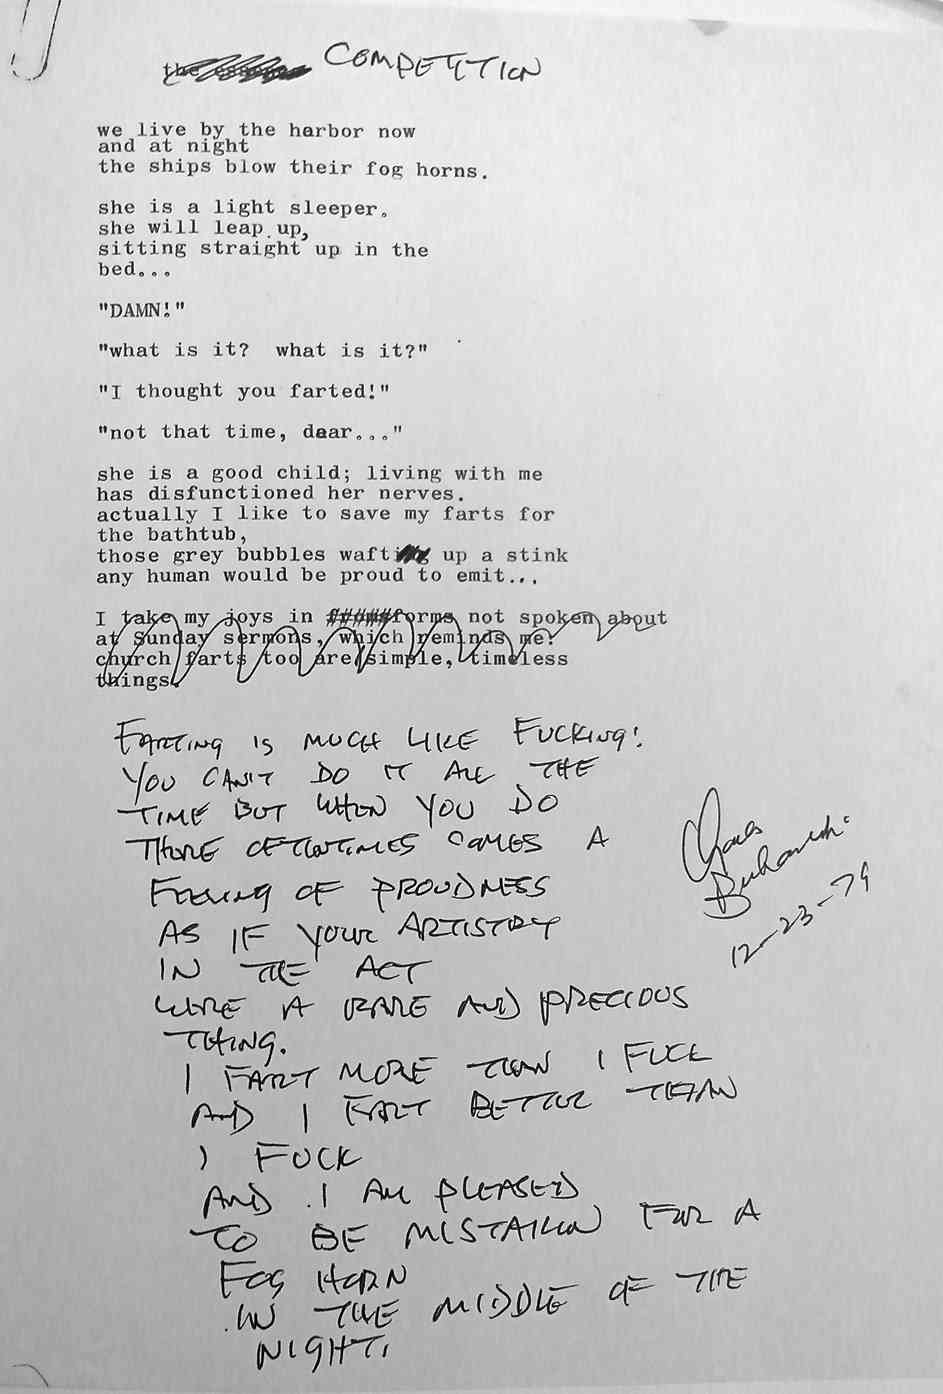 the COMPETITION
we live by the harbor now
and at night
the ships blow their fog horns.
she is a light sleeper.
she will leap up,
sitting straight up in the
bed...
"DAMN!"
"what is it?  what is it?"
"I thought you farted!"
"not that time, dear..."
she is a good child; living with me
has disfunctioned her nerves.
actually I like to save my farts for
the bathtub,
those grey bubbles wafting up a stink
any human would be proud to emit...
I take my joys in #####forms not spoken about
at Sunday sermons, which reminds me:
church farts too are simple, timeless
things.
FARTING IS MUCH LIKE FUCKING:
YOU CAN'T DO IT ALL THE
TIME BUT WHEN YOU DO
THERE OFTENTIMES COMES A
FEELING OF PROUDNESS
AS IF YOUR ARTISTRY
IN THE ACT
WERE A RARE AND PRECIOUS
THING.
I FART MORE THAN I FUCK
AND I FART BETTER THAN
I FUCK
AND I AM PLEASED
TO BE MISTAKEN FOR A
FOG HORN
IN THE MIDDLE OF THE
NIGHT.
Charles
Bukowski
12-23-79